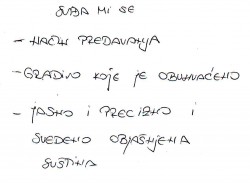 SVIĐA MI SE
- NAČIN PREDAVANJA
- GRADIVO KOJE JE OBUHVAĆENO
- JASNO I PRECIZNO I
SVEDENO OBJAŠNJENA
SUŠTINA